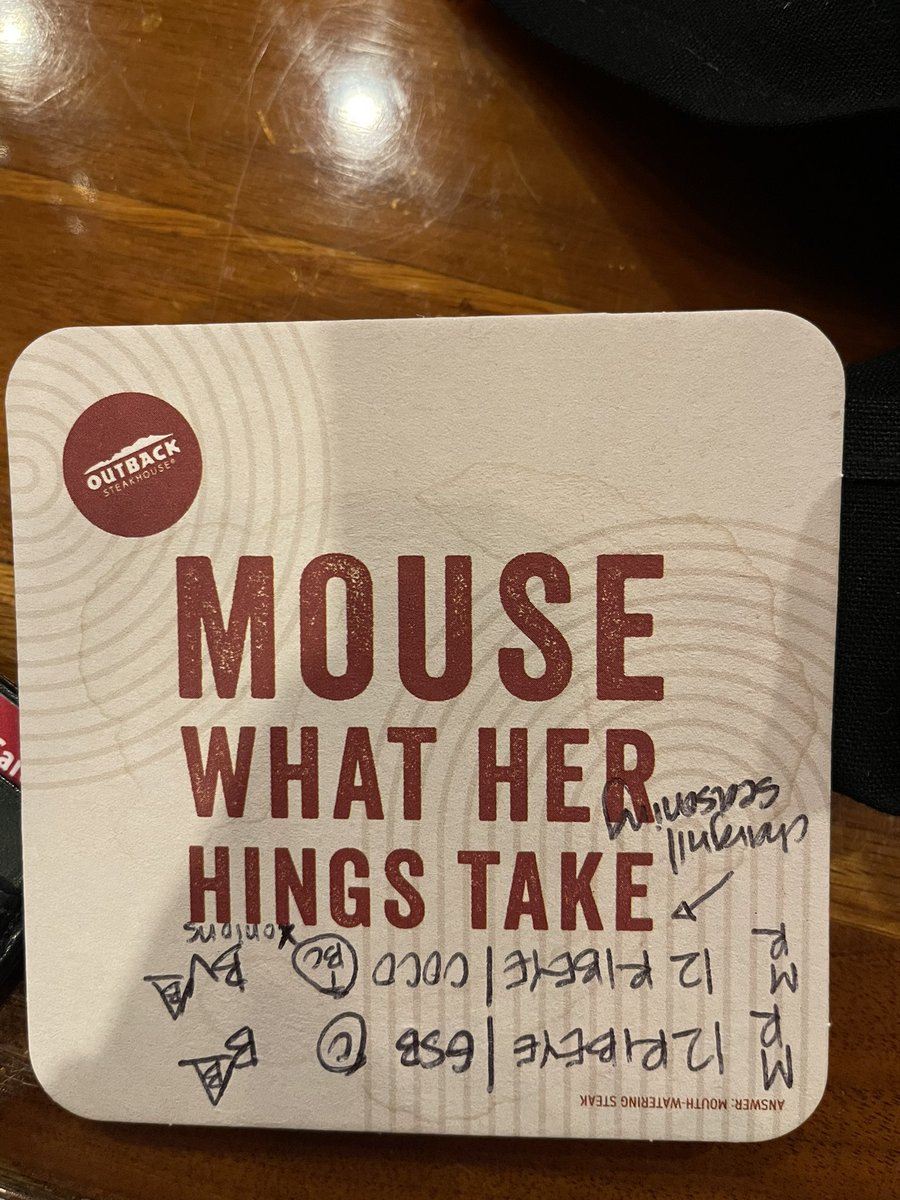 OUTBACK
STEAKHOUSE®
MOUSE
WHAT HER
HINGS TAKE
ANSWER: MOUTH-WATERING STEAK
MR 12 RIBEYE | GSB C B
MR 12 RIBEYE | COCO
x onions
chargrill
seasoning